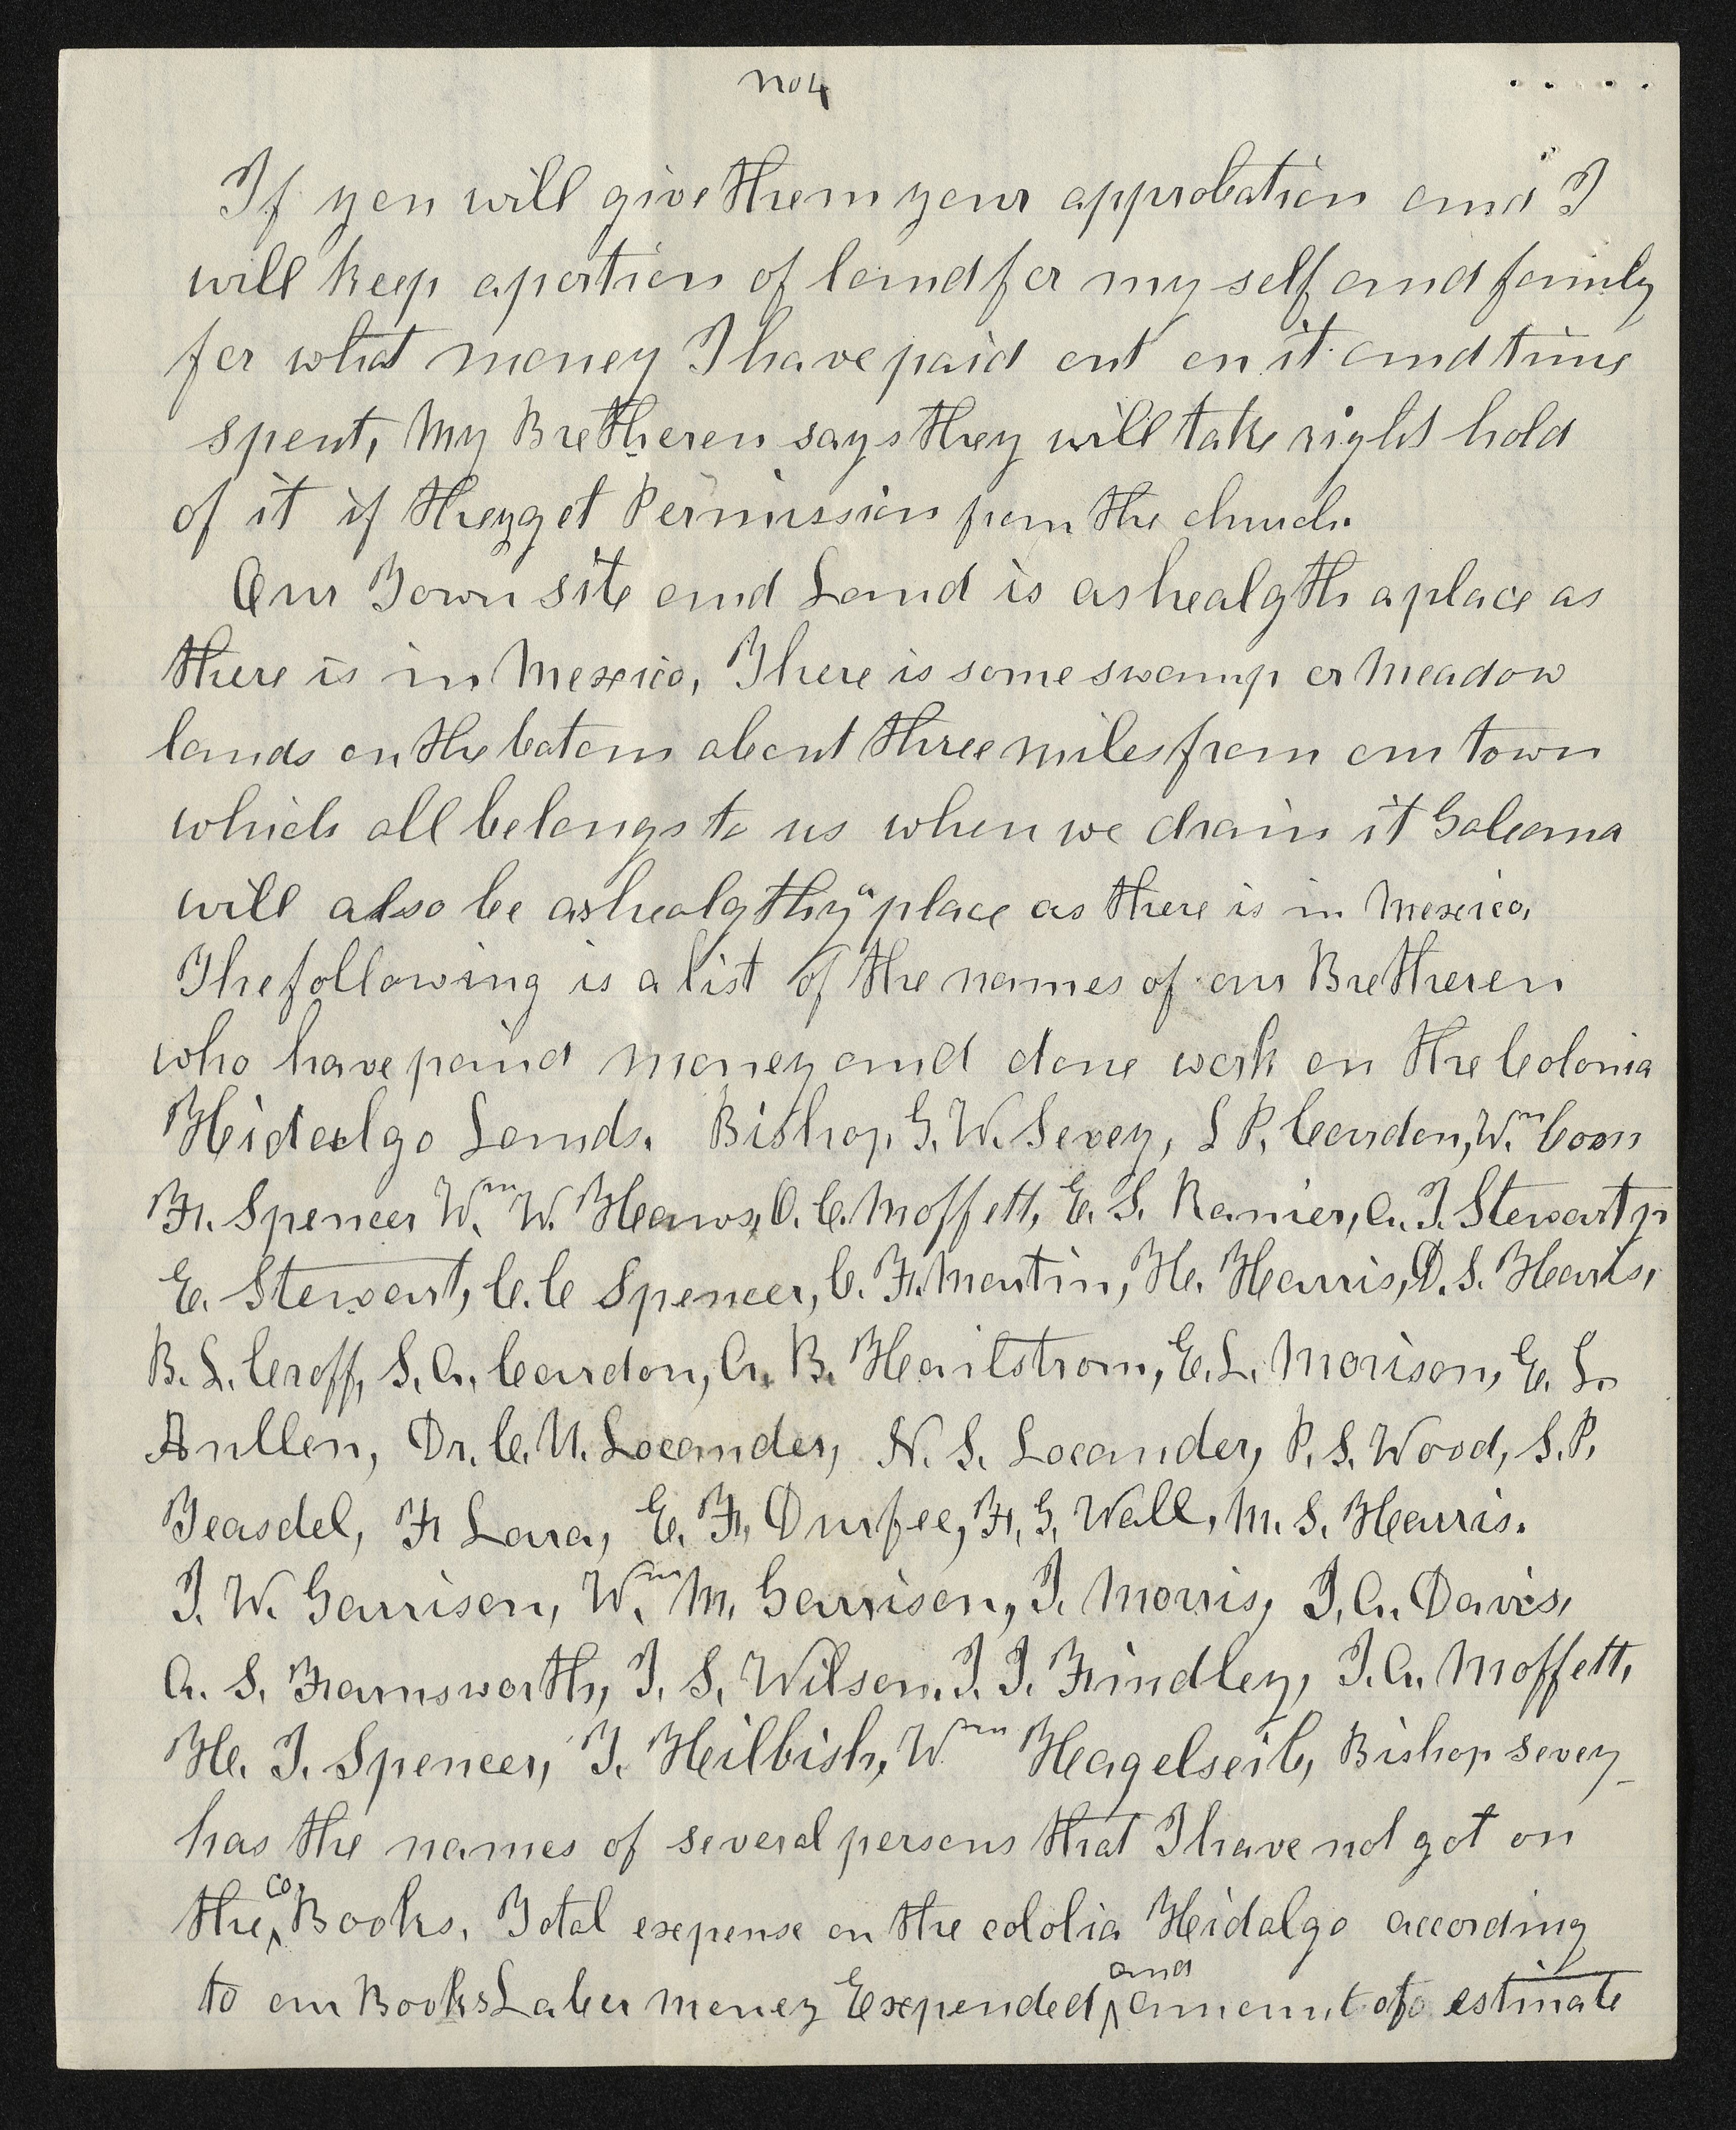 No 4
If you will give them your approbation and I
will keep a portion of land for my self and family
for what money I have paid out on it and time
spent, My Bretheren says they will take right hold
of it if they get Permission from the church.
Our Town site and Land is as healgth a place as
there is in Mexico, There is some swamp or meadow
lands on the botom about three miles from our town
which all belongs to us when we drain it Galeana
will also be as healgthy a place as there is in Mexico,
The following is a list of the names of our Bretheren
who have paind money and done work on the Colonia
Hidalgo Lands. Bishop G. W. Sevey, L P. Cardon, Wm Coon
F. Spencer Wm W. Haws, O. C. Moffett, E. S. Ranier, A. T. Stewart jr
E. Stewart, C. C Spencer, C. F. Martin, H. Harris, D. S. Haris,
B. L. Croff, S. A. Cardon, A. B. Hailstrom, E. L. Morison, E. L.
Anllen, Dr. C. N. Locander, N. S. Locander, P. S. Wood, S. P.
Teasdel, F Lara, E. F. Durfee, F. G. Wall, M. S. Harris.
J. W. Garrison, Wm M. Garrison, J. Morris, J. A. Davis,
A. S. Farnsworth, J. S. Wilson. J. J. Findley, J. A. Moffett,
H. J. Spencer, J. Hilbish, Wm Hagelseib, Bishop Sevey
has the names of several persons that I have not got on
the co. Books. Total expense on the cololia Hidalgo according
to our Books Labor money Expended and amount of estimate